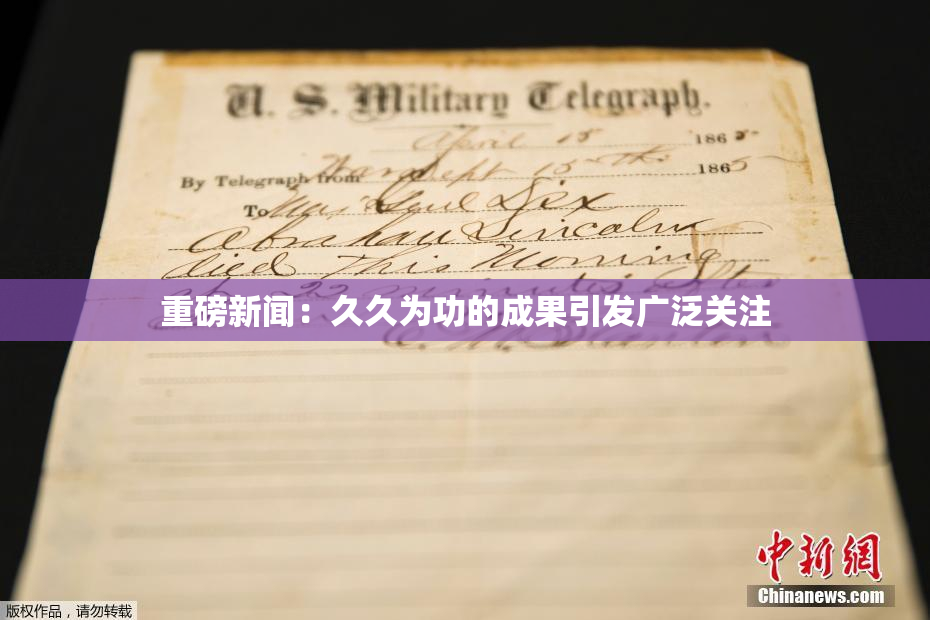 U. S. Military Telegraph.
April 15 1865
By Telegraph from War Dept 15th 1865
To Maj Genl Dix
Abraham Lincoln
died This Morning
at 22 minutes after
重磅新闻：久久为功的成果引发广泛关注
E. M. Stanton
中新网
Chinanews.com
版权作品，请勿转载